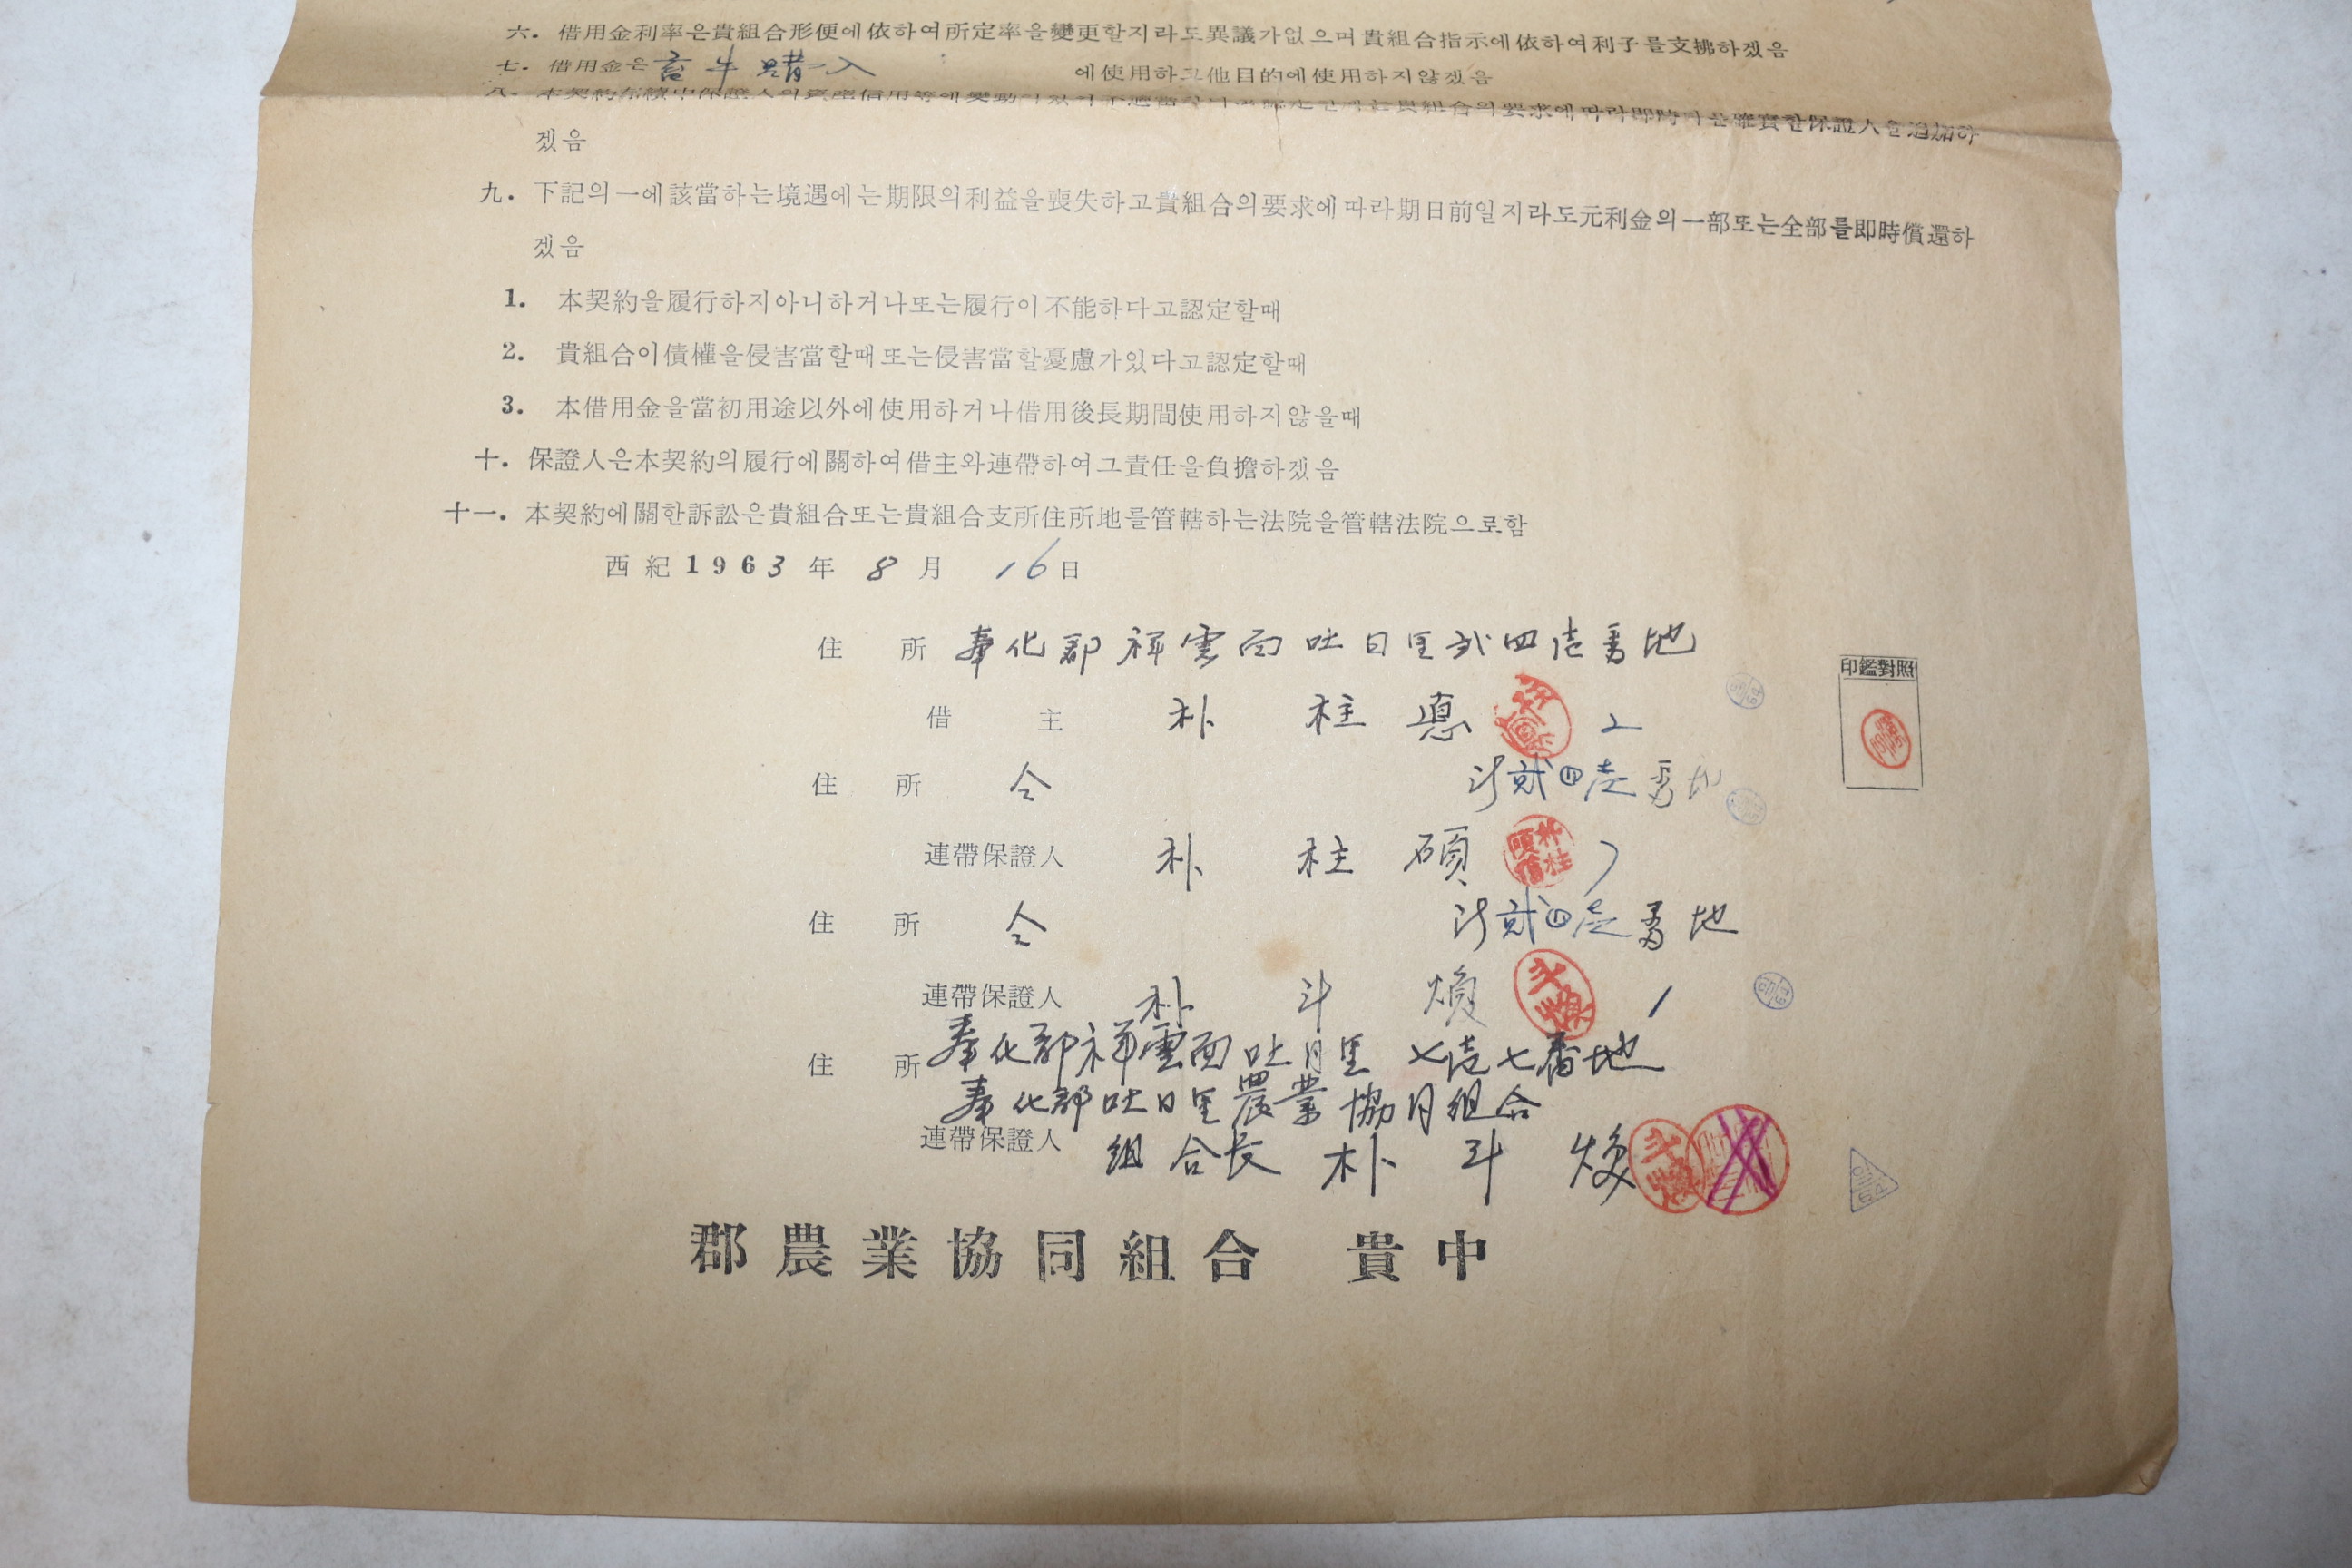 六. 借用金利率은貴組合形便에依하여所定率을變更할지라도異議가없으며貴組合指示에依하여利子를支拂하겠음
七. 借用金은 畜牛購入 에使用하고他目的에使用하지않겠음
八. 本契約存續中保證人의資產信用等에變動이있어 貴組合의要求에따라即時 確實한保證人을追加하
겠음
九. 下記의一에該當하는境遇에는期限의利益을喪失하고貴組合의要求에따라期日前일지라도元利金의一部또는全部를即時償還하
겠음
1. 本契約을履行하지아니하거나또는履行이不能하다고認定할때
2. 貴組合이債權을侵害當할때또는侵害當할憂慮가있다고認定할때
3. 本借用金을當初用途以外에使用하거나借用後長期間使用하지않을때
十. 保證人은本契約의履行에關하여借主와連帶하여그責任을負擔하겠음
十一. 本契約에關한訴訟은貴組合또는貴組合支所住所地를管轄하는法院을管轄法院으로함
西紀1963年 8月 16日
住所 奉化郡祥雲面吐日里弐四壱番地
借主 朴柱憙
印鑑對照
住所 仝 弐四壱番地
連帶保證人 朴柱碩
朴柱碩信
住所 仝 弐四壱番地
連帶保證人 朴斗煥
斗煥
住所 奉化郡祥雲面吐日里 七壱七番地
奉化郡吐日里農業協同組合
連帶保證人 組合長 朴斗煥
斗煥
郡農業協同組合 貴中